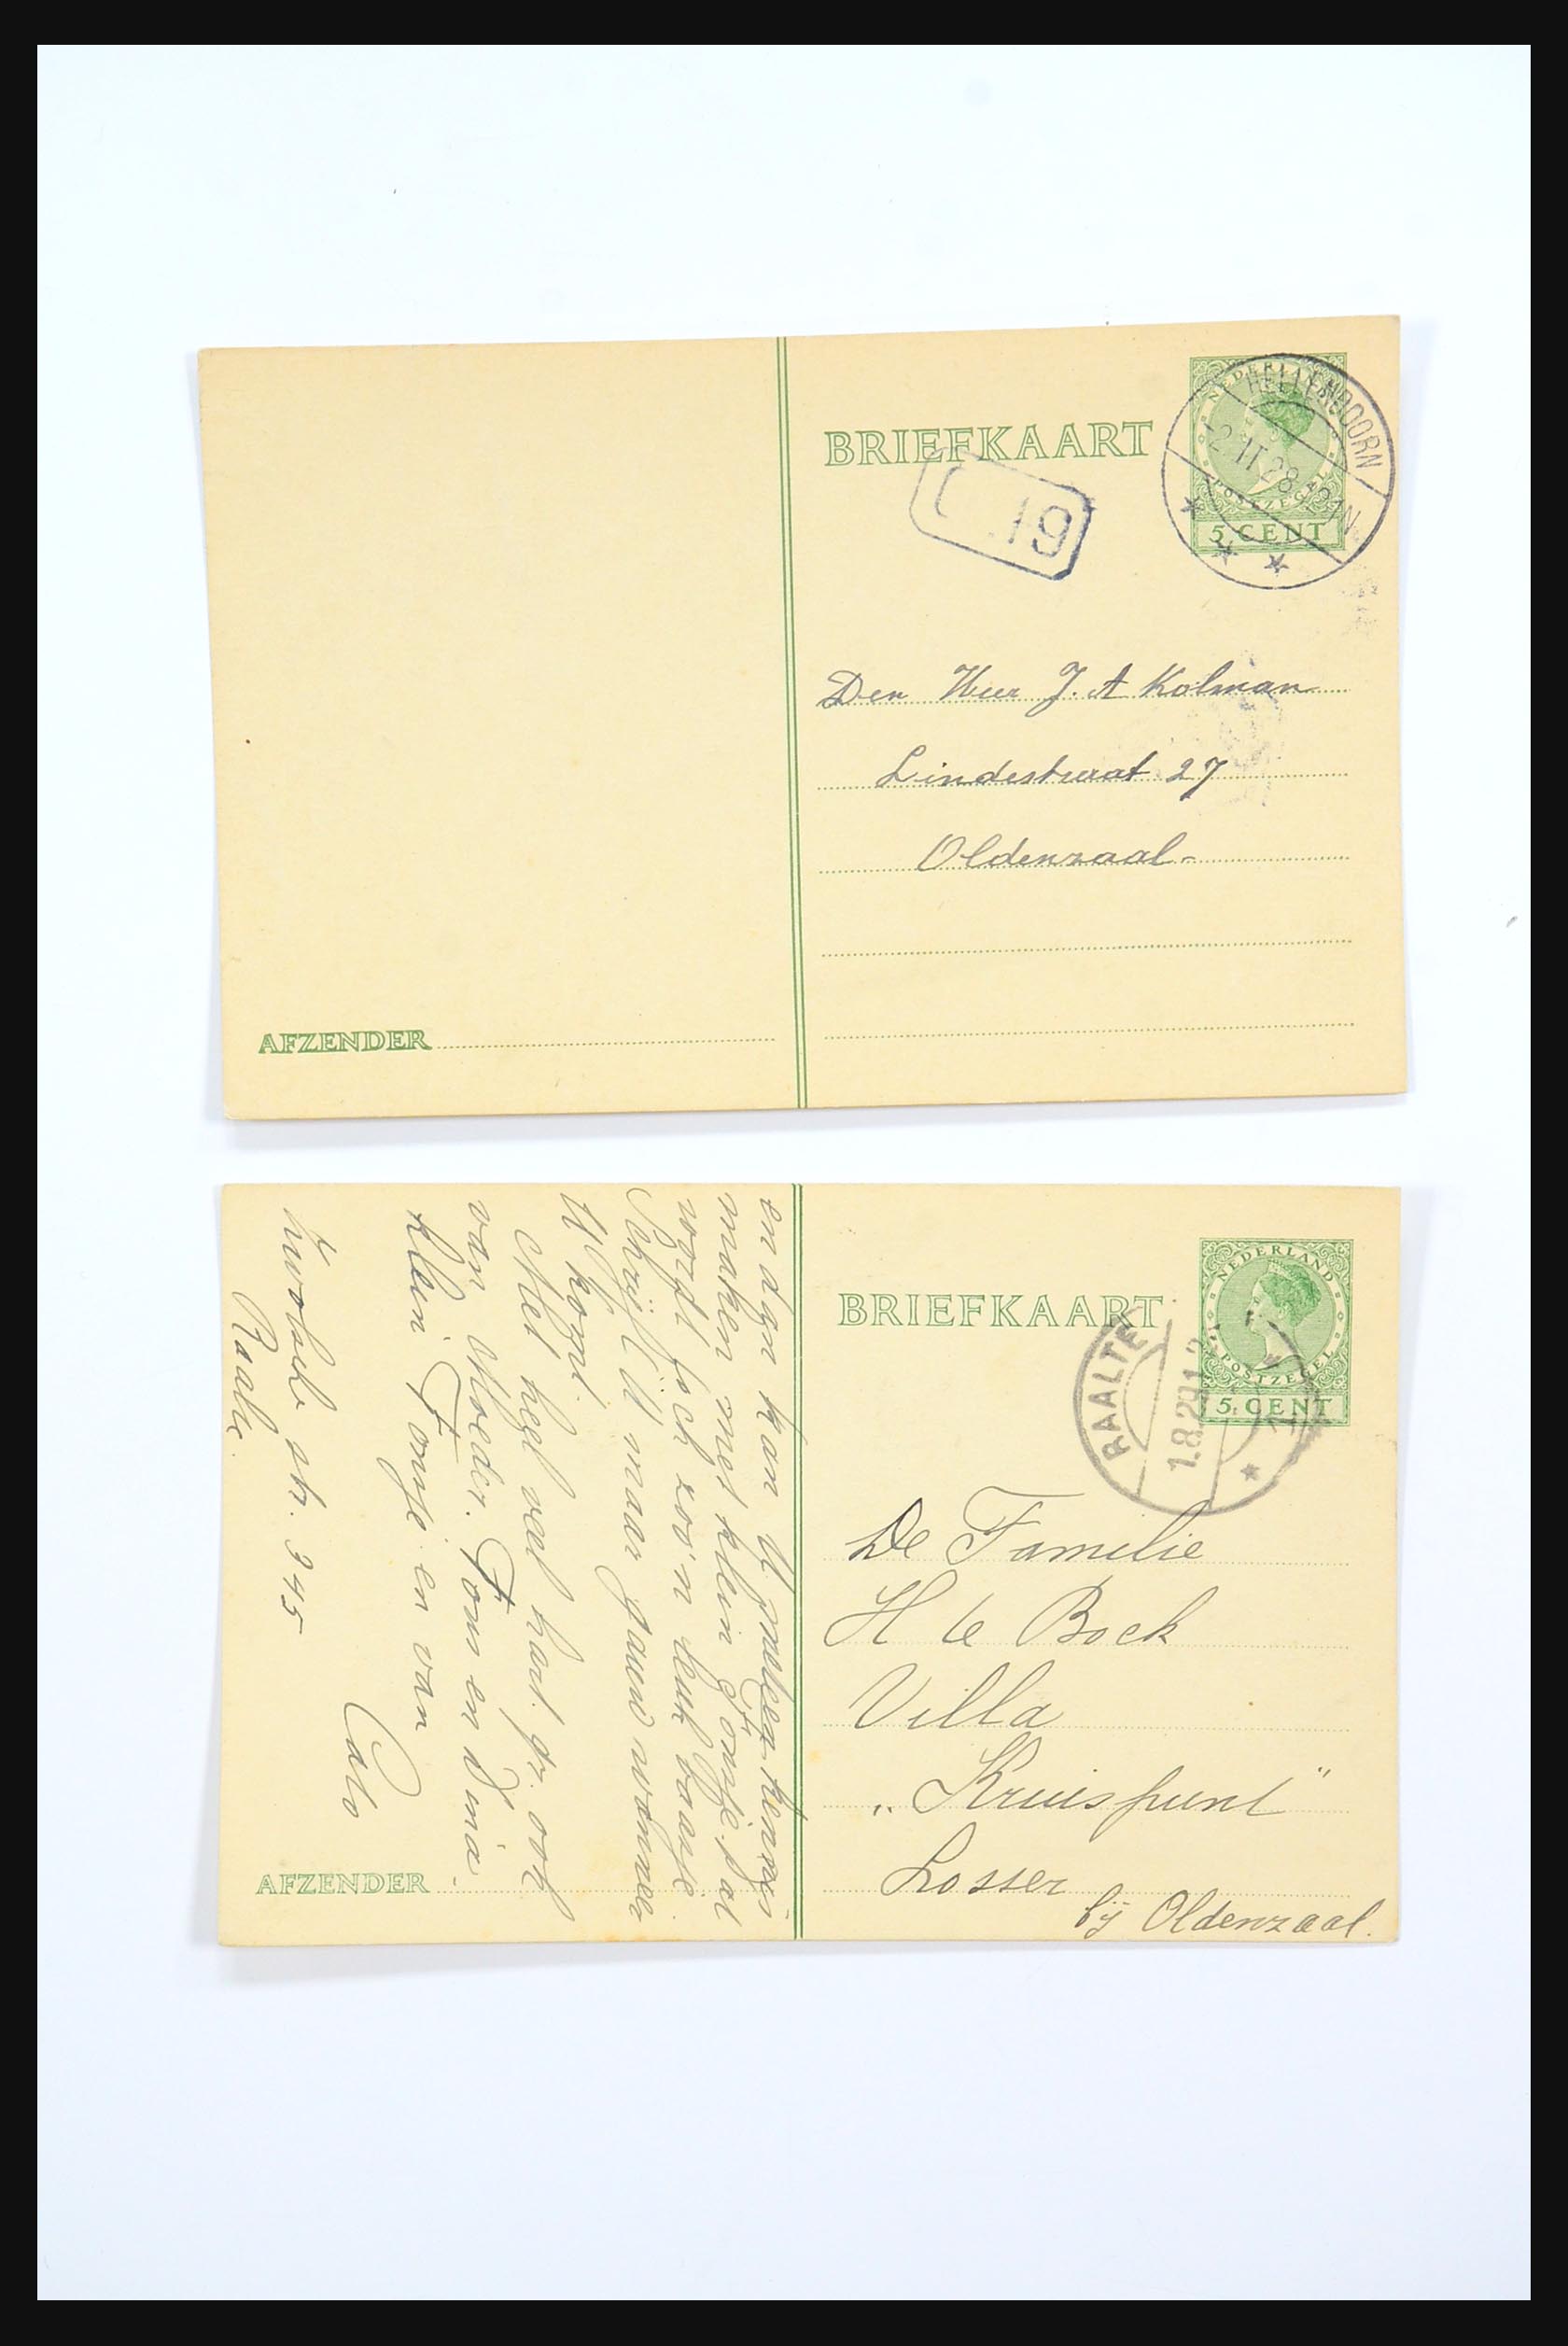 BRIEFKAART
NEDERLAND
POSTZEGEL
5 CENT
HELLENDOORN
-2.11.28.12-1N.
19
Den Heer J. A Kolman
Lindestraat 27
Oldenzaal-
AFZENDER
BRIEFKAART
NEDERLAND
POSTZEGEL
5 CENT
RAALTE
1.8.29.1
De Familie
H te Bock
Villa
„Kruispunt"
Losser
bij Oldenzaal.
en dan kan U meteen kennis
maken met klein Tonije. Dat
wordt toch zoo'n leuk baasje
Schrijft U maar gauw wanneer
U komt.
Met heel veel hart. gr. ook
van Moeder. Tom en Dina.
klein Tonije en van
Cato
str. 345
Raalte.
AFZENDER